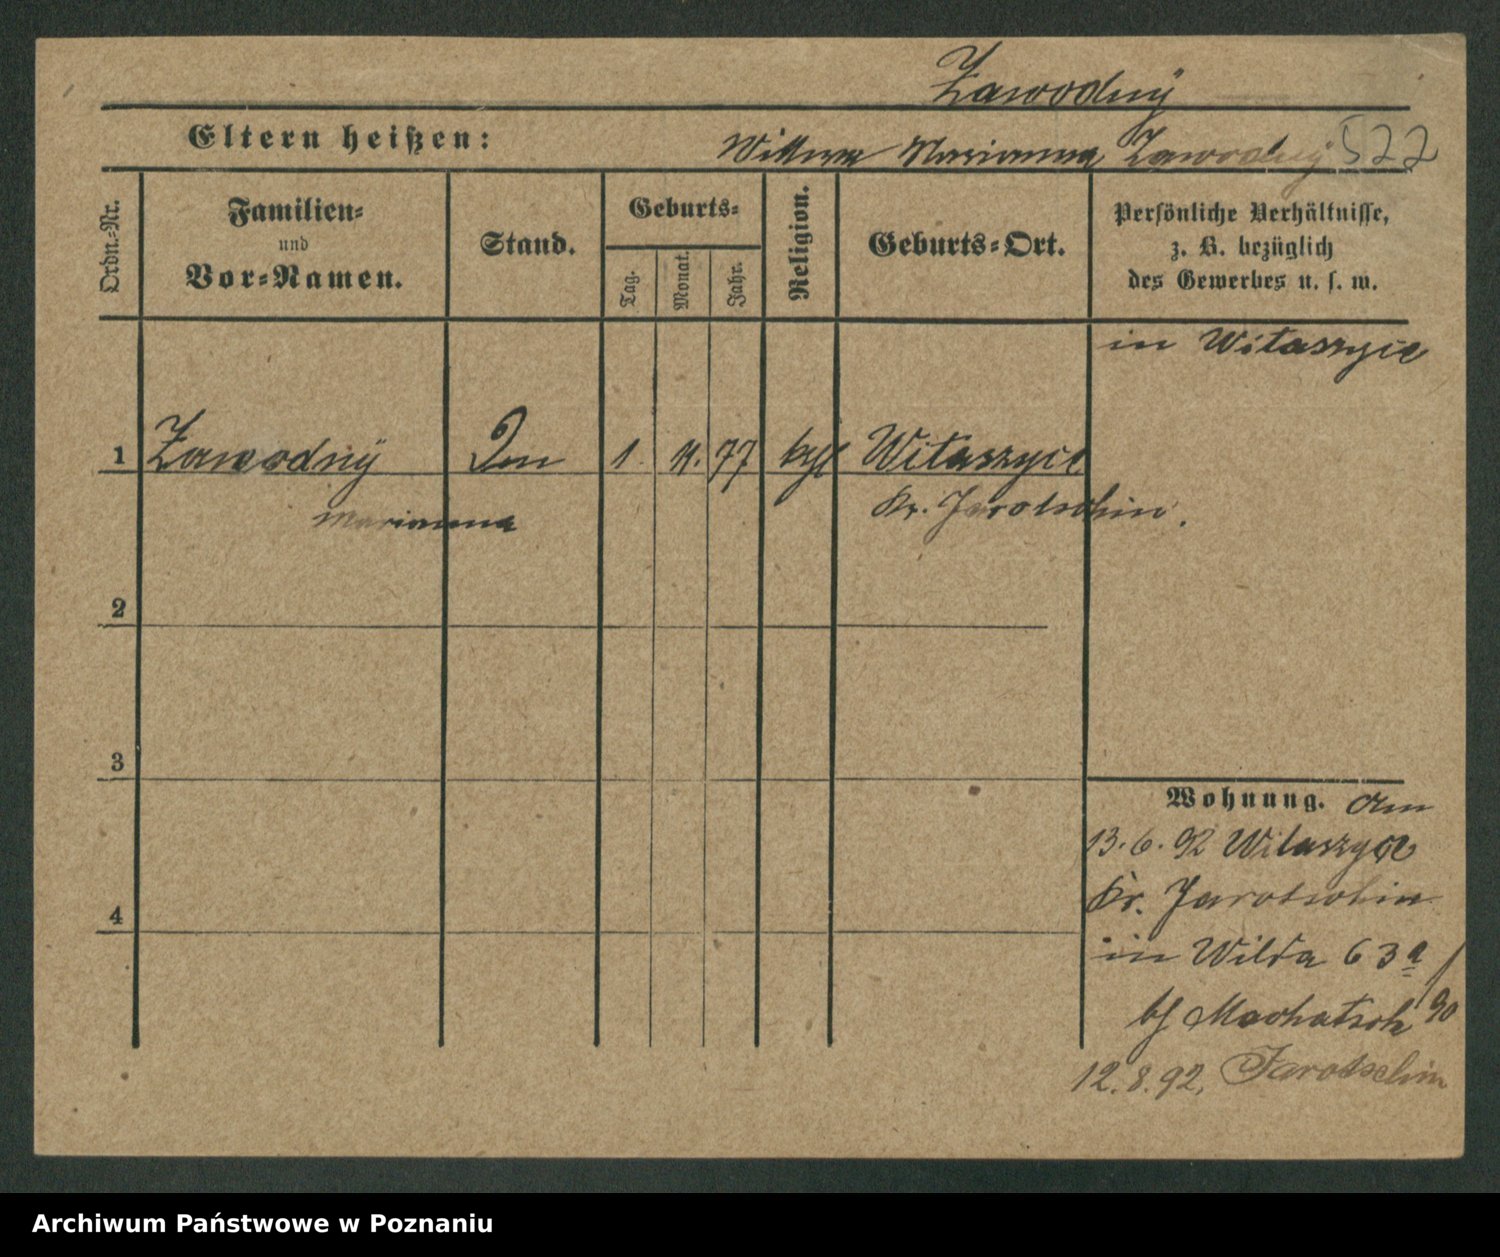 Zawodny
Eltern heißen: Wittwe Marianna Zawodny 522
Ordn.-Nr.
Familien-
und
Vor-Namen.
Stand.
Geburts-
Tag.
Monat.
Jahr.
Religion.
Geburts-Ort.
Persönliche Verhältnisse,
z. B. bezüglich
des Gewerbes u. s. w.
in Witaszyce
1 Zawodny 1. 11. 77 Witaszyce
Marianna Kr. Jarotschin.
2
3
Wohnung. Am
13.6.92 Witaszyce
Kr. Jarotschin
4
in Wilda 63a
bf Machatsch 90
12.8.92, Jarotschin
Archiwum Państwowe w Poznaniu